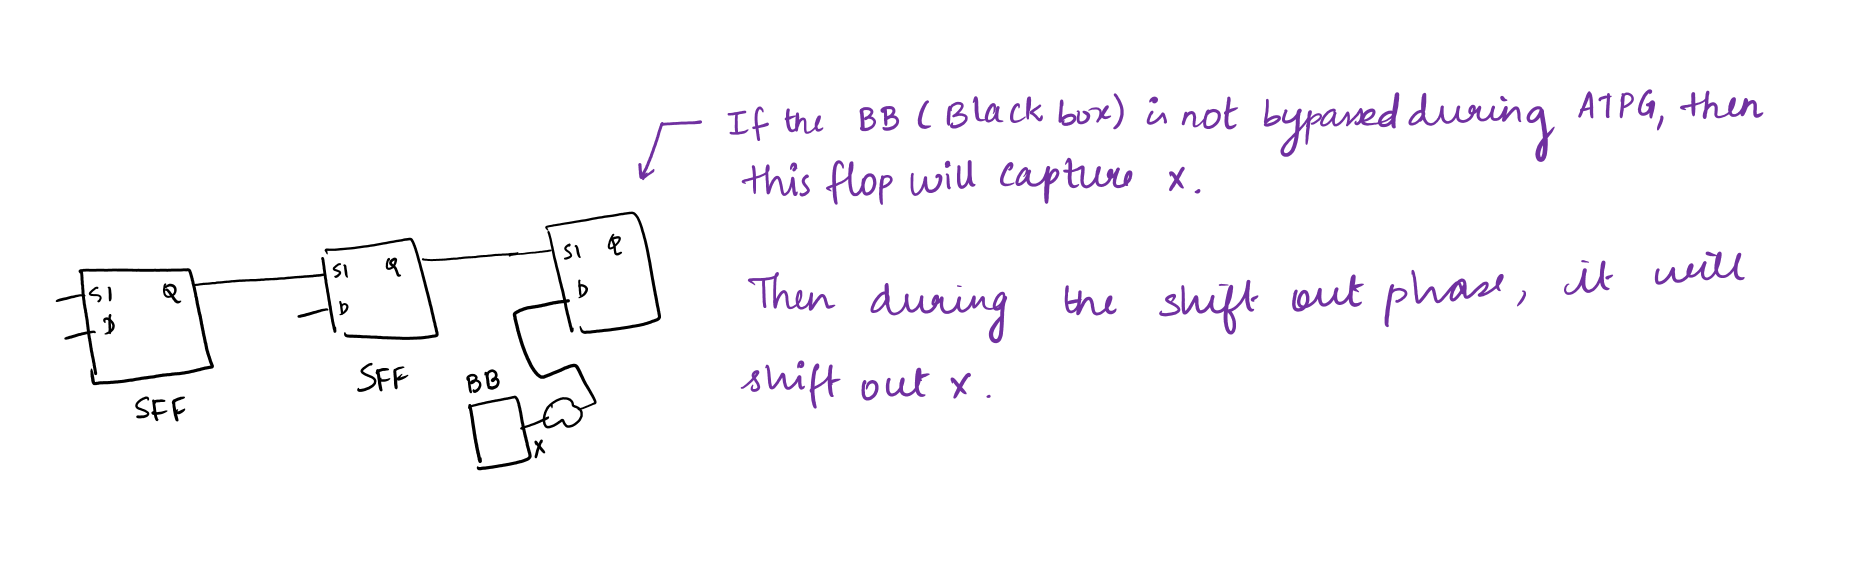 If the BB (Black box) is not bypassed during ATPG, then
this flop will capture x.
Then during the shift out phase, it will
shift out x.
SI Q
D
SFF
SI Q
D
SFF
SI Q
D
BB
X